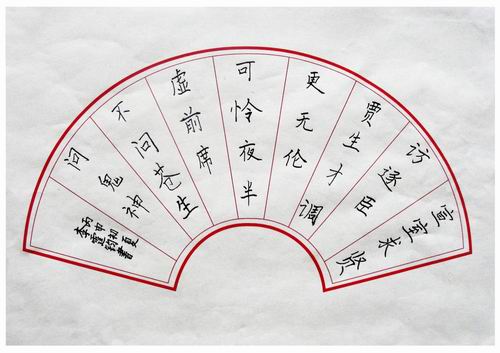 宣室求贤
访逐臣
贾生才调
更无伦
可怜夜半
虚前席
不问苍生
问鬼神
丙申初夏
李钧書